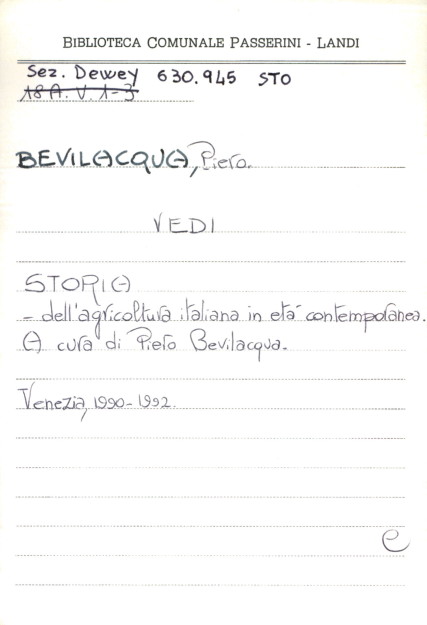 BIBLIOTECA COMUNALE PASSERINI - LANDI
Sez. Dewey 630.945 STO
18 A. V. 1-3
BEVILACQUA, Piero.
VEDI
STORIA
- dell'agricoltura italiana in età contemporanea.
A cura di Piero Bevilacqua.
Venezia, 1990-1992.
e